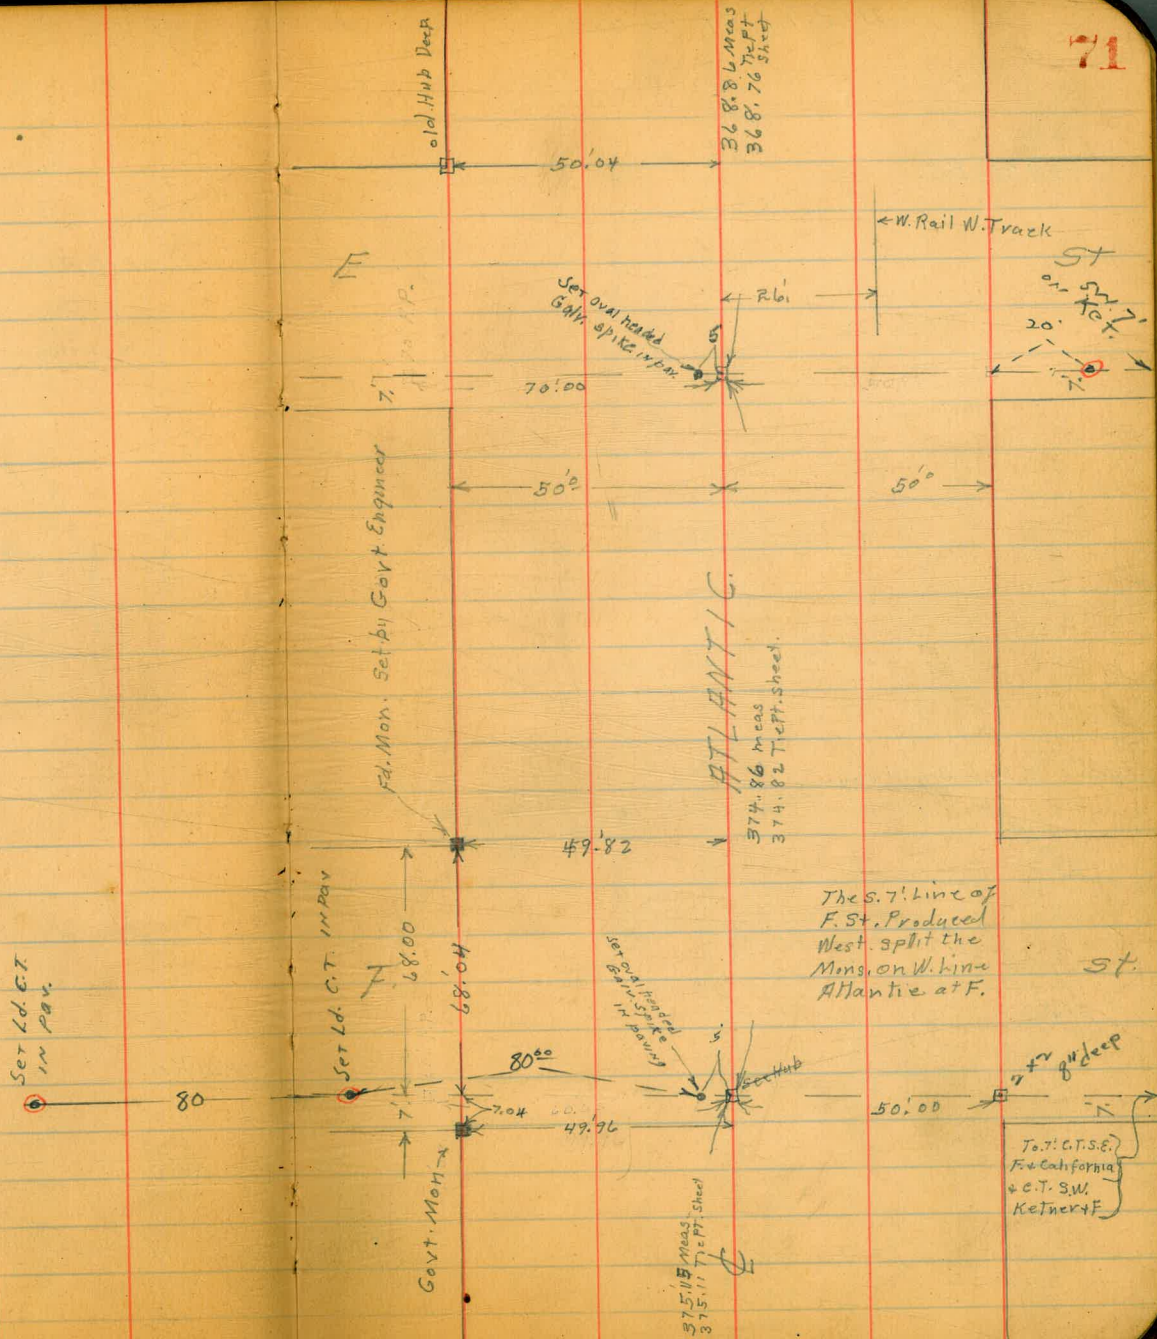 71
old Hub Deep
368.86 Meas
368.76 Tie Pt
Sheet
50.'04
W. Rail W. Track
E
St
26'
Set oval headed
Galv. spike in pav.
5
20'
7'
7.'
70.'00
7.'
50.'0
50.'0
Fd. Mon. Set by Govt. Engineer
ATLANTIC
374.86 meas
374.82 Tie Pt. sheet.
49.'82
The S. 7' Line of
F. St. Produced
West split the
Mons. on W. Line
Atlantic at F.
Set Ld. C.T.
IN Pav.
Set Ld. C.T. IN Pav
F
68.00
68.'04
St.
Set oval headed
Galv. spike
in paving
5.
80.00
80
set Hub
2"x2" 8" deep
7'
7.04
50.'00
7.'
49.'96
Govt. Mon
To 7' C.T. S.E.
F. & California
& C.T. S.W.
Ketner & F
375.15 Meas.
375.11 Tie PT. sheet